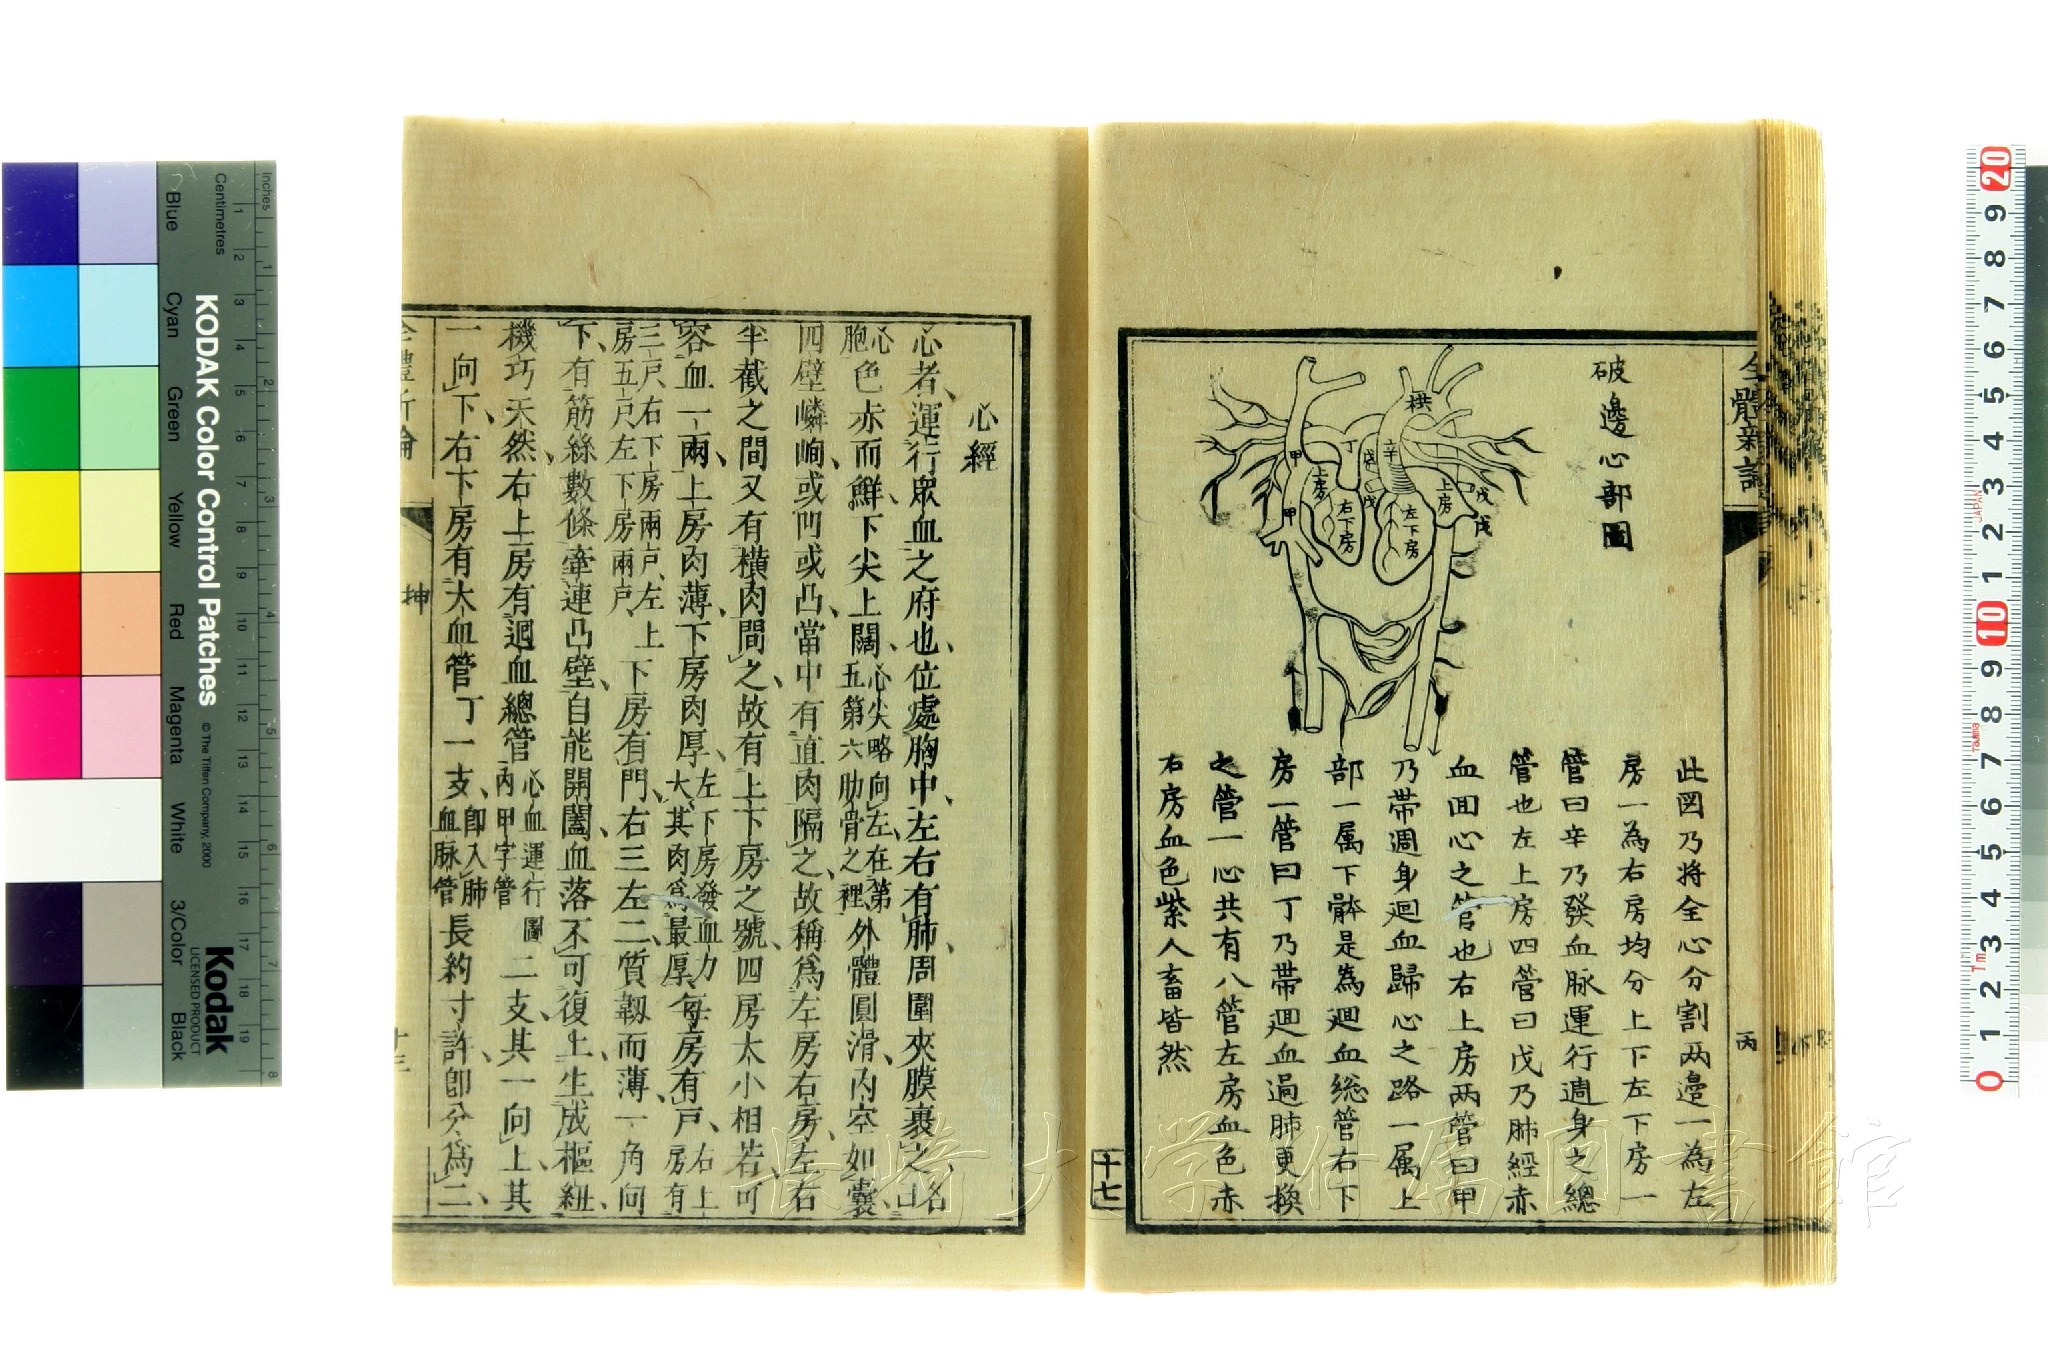 全體新論
破邊心部圖
此图乃將全心分割两邊一為左
房一為右房均分上下左下房一
管曰辛乃發血脉運行週身之總
管也左上房四管曰戊乃肺經赤
血囬心之管也右上房两管曰甲
乃帶週身廻血歸心之路一属上
部一属下體是為廻血総管右下
房一管曰丁乃帶廻血過肺更換
之管一心共有八管左房血色赤
右房血色紫人畜皆然
拱
辛
丁
甲
甲
上房
右下房
左下房
上房
戊
戊
戊
戊
丙
十七
心經
心者、運行眾血之府也、位處胸中、左右有肺、周圍夾膜裹之、名
心胞色赤而鮮、下尖上闊、心尖略向左、在第五第六肋骨之裡外體圓滑、内空如囊、
四壁嶙峋、或凹或凸、當中有直肉隔之、故稱爲左房右房、左右
半截之間、又有橫肉間之、故有上下房之號、四房大小相若、可
容血一兩、上房肉薄、下房肉厚、左下房發血力大、其肉爲最厚每房有戶、右上房有
三戶右下房兩戶、左上房五戶左下房兩戶、下房有門、右三左二、質韌而薄、一角向
下、有筋絲數條、牽連凸壁、自能開闔、血落不可復上、生成樞紐、
機巧天然、右上房有迴血總管心血運行圖內甲字管二支、其一向上、其
一向下、右下房有大血管丁一支、卽入肺血脈管長約寸許、卽分爲二、
全體新論
KODAK Color Control Patches
© The Tiffen Company, 2000
Kodak
LICENSED PRODUCT
Inches
Centimetres
Blue
Cyan
Green
Yellow
Red
Magenta
White
3/Color
Black
長崎大学附属図書館